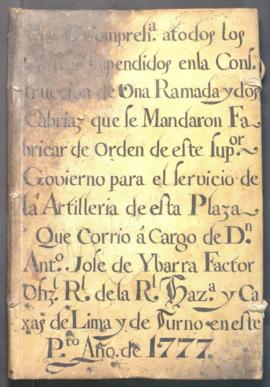 Compreh.ª a todos los
Supendidos en la Cons
truccion de Una Ramada y dos
Cabrias que se Mandaron Fa
bricar de Orden de este Sup.or
Govierno para el servicio de
la Artilleria de esta Plaza
Que Corrio á Cargo de D.n
Ant.o Jose de Ybarra Factor
Ofiz. R.l de la R.l Haz.a y Ca
xas de Lima y de Turno en este
P.to Año. de 1777.